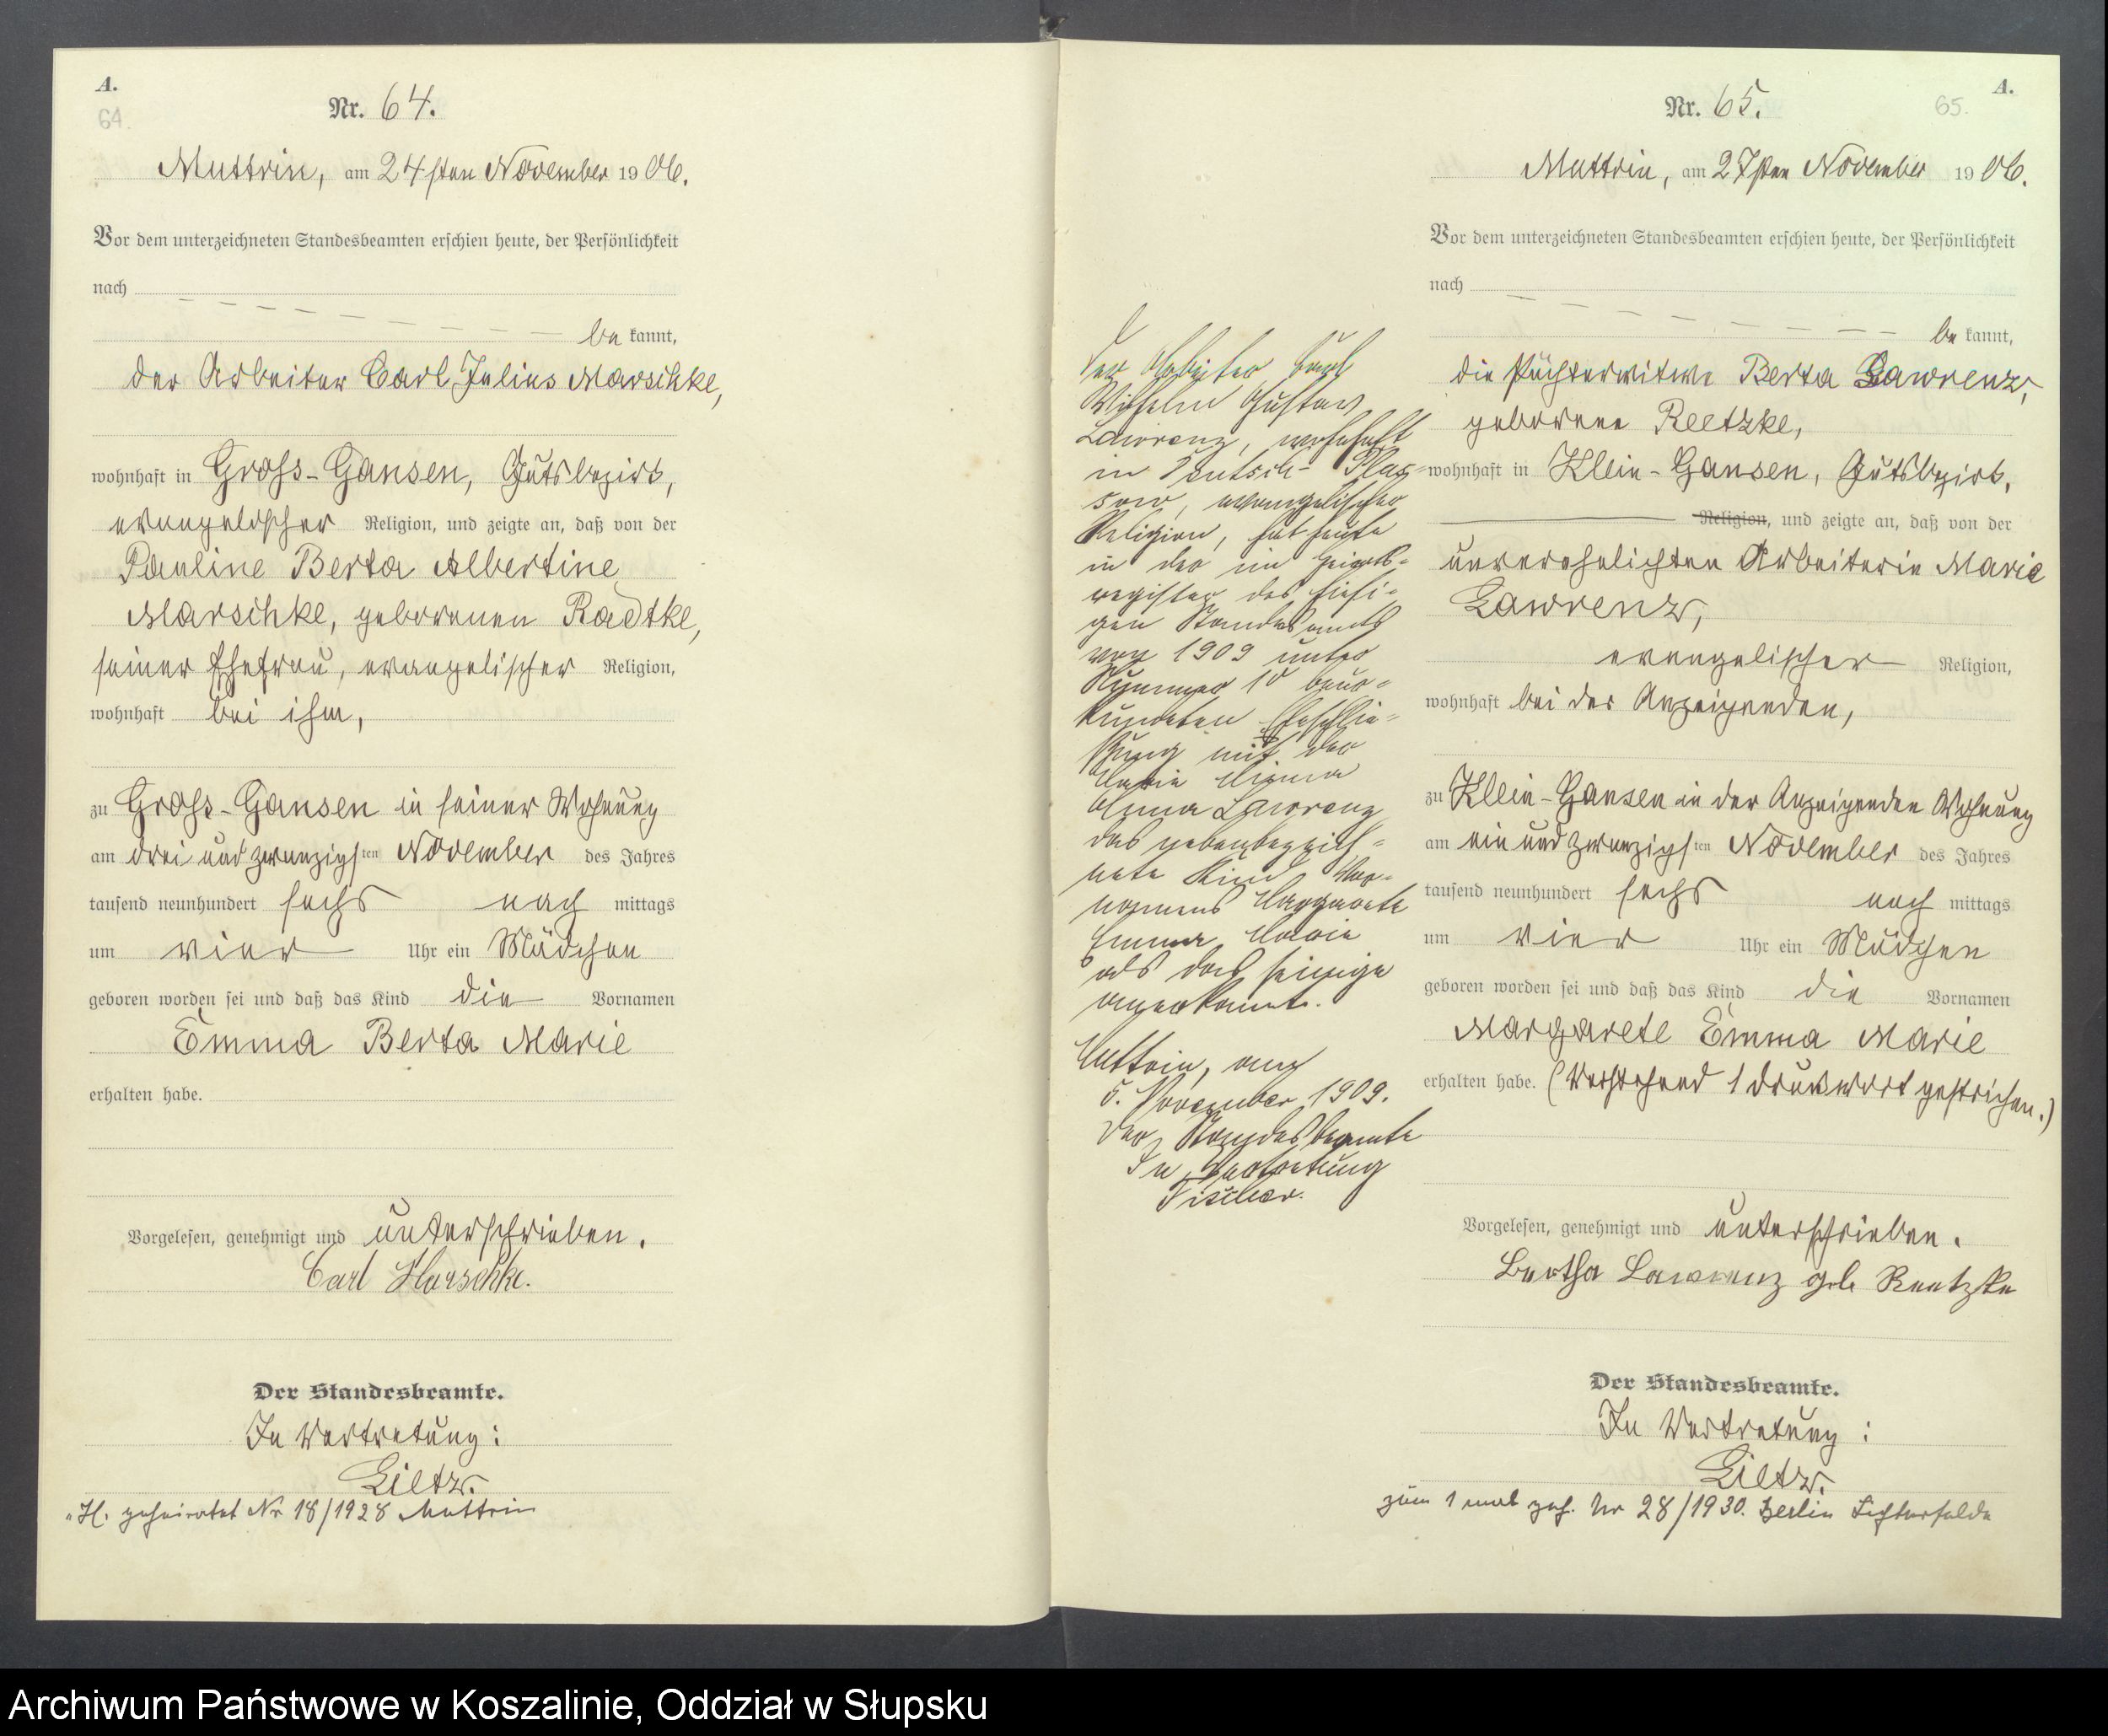 A.
64.
Nr. 64.
Muttrin, am 24sten November 1906.
Vor dem unterzeichneten Standesbeamten erschien heute, der Persönlichkeit
nach
bekannt,
der Arbeiter Carl Julius Marschke,
wohnhaft in Gross-Gansen, Gutsbezirk,
evangelischer Religion, und zeigte an, daß von der
Pauline Berta Albertine
Marschke, geborenen Radtke,
seiner Ehefrau, evangelischer Religion,
wohnhaft bei ihm,
zu Gross-Gansen in seiner Wohnung
am drei und zwanzigsten November des Jahres
tausend neunhundert sechs nachmittags
um vier Uhr ein Mädchen
geboren worden sei und daß das Kind die Vornamen
Emma Berta Marie
erhalten habe.
Vorgelesen, genehmigt und unterschrieben.
Carl Marschke.
Der Standesbeamte.
In Vertretung:
Lietz.
H. geheiratet Nr 18/1928 Muttrin
Der Arbeiter
Wilhelm Gustav
Lawrenz, wohnhaft
in Deutsch-Plas-
sow, evangelischer
Religion, hat heute
in der im Heirats-
register des hiesi-
gen Standesamts
von 1909 unter
Nummer 10 beur-
kundeten Eheschlie-
ßung mit der
Marie Minna
Anna Lawrenz
das nebenbezeich-
nete Kind Vor-
namens Margarete
Emma Marie
als das seinige
anerkannt.
Muttrin, am
5. November 1909.
Der Standesbeamte
In Vertretung
Fischer.
A.
65.
Nr. 65.
Muttrin, am 27sten November 1906.
Vor dem unterzeichneten Standesbeamten erschien heute, der Persönlichkeit
nach
bekannt,
die Pächterwitwe Berta Lawrenz,
geborene Reetzke,
wohnhaft in Klein-Gansen, Gutsbezirk,
Religion, und zeigte an, daß von der
unverehelichten Arbeiterin Marie
Lawrenz,
evangelischer Religion,
wohnhaft bei der Anzeigenden,
zu Klein-Gansen in der Anzeigenden Wohnung
am ein und zwanzigsten November des Jahres
tausend neunhundert sechs nachmittags
um vier Uhr ein Mädchen
geboren worden sei und daß das Kind die Vornamen
Margarete Emma Marie
erhalten habe. (Vorstehend 1 Druckwort gestrichen.)
Vorgelesen, genehmigt und unterschrieben.
Bertha Lawrenz geb Reetzke
Der Standesbeamte.
In Vertretung:
Lietz.
zum 1 mal geh. Nr 28/1930. Berlin Lichterfelde
Archiwum Państwowe w Koszalinie, Oddział w Słupsku